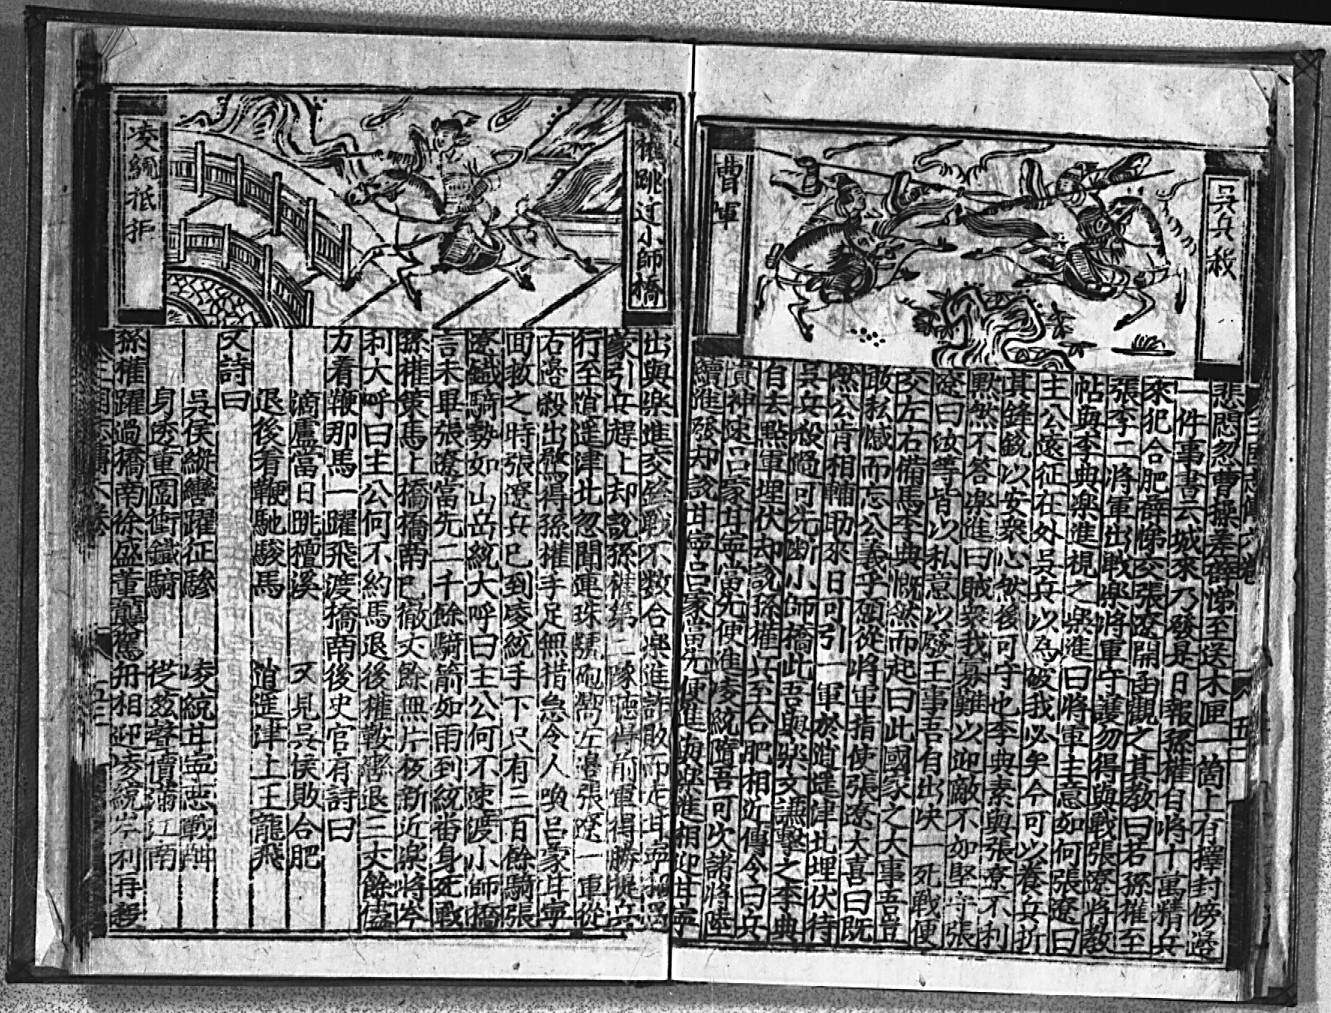 吳兵殺
曹軍
悲悶忽曹操差薛悌至送木匣一箇上有擇封傍邊
一件事畫云城來乃發是日報孫權自將十萬精兵
來犯合肥薛悌交張遼開函觀之其教曰若孫權至
張李二將軍出戰樂將軍守護勿得與戰張遼將教
帖與李典樂進視之樂進曰將軍主意如何張遼曰
主公遠征在外吳兵以為破我必矣今可以養兵折
其鋒銳以安衆心然後可守也李典素與張遼不利
默然不答樂進曰賊衆我寡難以迎敵不如堅守張
遼曰汝等皆以私意以廢王事吾自出決一死戰便
交左右備馬李典慨然而起曰此國家之大事吾豈
敢私憾而忘公義乎願從將軍指使張遼大喜曰既
然公肯相輔助來日可引一軍於逍遙津北埋伏待
吳兵殺過可先斷小師橋此吾與樂文謙擊之李典
自去點軍埋伏却說孫權兵至合肥相近傳令曰兵
貴神速呂蒙甘寧當先便進凌統隨吾可次諸將陸
續進發却說甘寧呂蒙當先便進與樂進相迎甘寧
權跳过小師橋
凌統抵拒
出與樂進交鋒戰不数合樂進詐敗而走甘寧招呂
蒙引兵趕上却說孫權第二隊聽得前軍得勝催兵
行至逍遙津北忽聞連珠號砲响左邊張遼一軍從
右邊殺出驚得孫權手足無措急令人喚呂蒙甘寧
回救之時張遼兵已到凌統手下只有三百餘騎張
遼鐵騎勢如山岳統大呼曰主公何不速渡小師橋
言未畢張遼當先二千餘騎箭如雨到統番身死戰
孫權策馬上橋橋南已徹丈餘無片板新近與將岑
利大呼曰主公何不約馬退後權鞍轡退三丈餘儘
力着鞭那馬一躍飛渡橋南後史官有詩曰
滴盧當日跳檀溪　又見吳侯敗合肥
退後着鞭馳駿馬　逍遙津上玉龍飛
又詩曰
吳侯縱轡躍征驂　凌統甘寧忠戰酣
身透重圍衝鐵騎　從茲聲價滿江南
孫權躍過橋南徐盛董襲駕舟相迎凌統岑利再殺